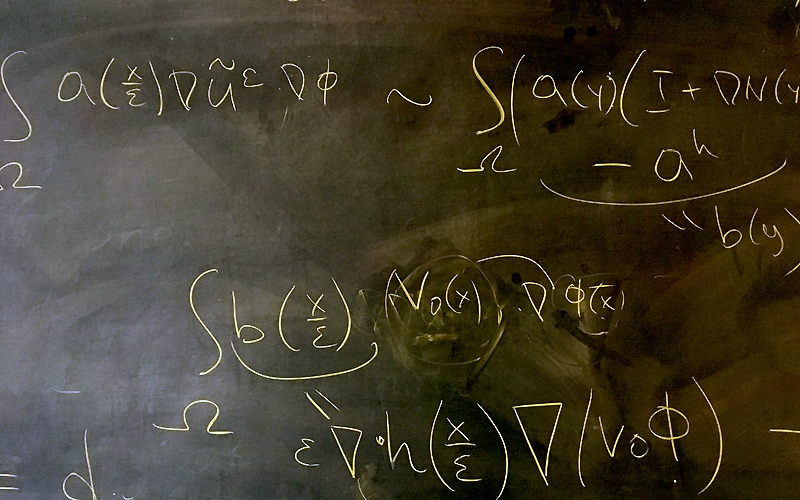 ∫_Ω a(x/ε)∇ũ^ε·∇ϕ ~ ∫_Ω (a(y)(I + ∇N(y
− a^h
" b(y)
∫_Ω b(x/ε) (V₀(x)) · ∇ϕ(x)
"
ε∇·h(x/ε)∇(V₀ϕ) −
= d